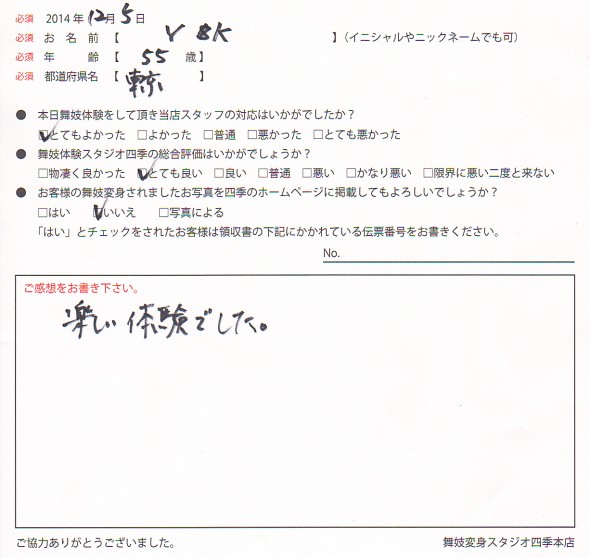 必須 2014年 12月 5日
必須 お名前【 Y 8K 】(イニシャルやニックネームでも可)
必須 年齢【 55 歳】
必須 都道府県名【 東京 】
● 本日舞妓体験をして頂き当店スタッフの対応はいかがでしたか?
☑とてもよかった □よかった □普通 □悪かった □とても悪かった
● 舞妓体験スタジオ四季の総合評価はいかがでしょうか?
□物凄く良かった ☑とても良い □良い □普通 □悪い □かなり悪い □限界に悪い二度と来ない
● お客様の舞妓変身されましたお写真を四季のホームページに掲載してもよろしいでしょうか?
□はい ☑いいえ □写真による
「はい」とチェックをされたお客様は領収書の下記にかかれている伝票番号をお書きください。
No.
ご感想をお書き下さい。
楽しい体験でした。
ご協力ありがとうございました。 舞妓変身スタジオ四季本店